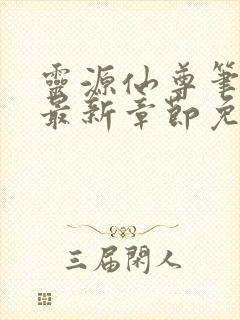 靈源仙尊筆
最新章節免
三届閑人